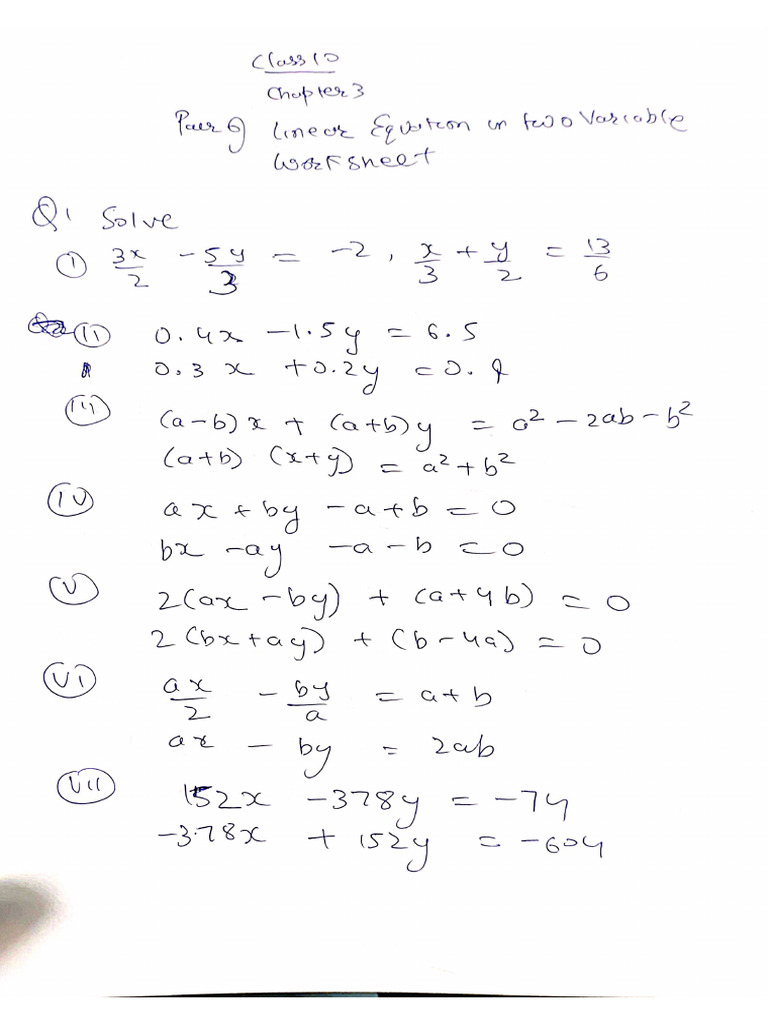 Class 10
Chapter 3
Pair of Linear Equation in two Variable
Worksheet
Q1 Solve
(i) 3x/2 - 5y/3 = -2, x/3 + y/2 = 13/6
(ii) 0.4x - 1.5y = 6.5
0.3x + 0.2y = 0.9
(iii) (a-b)x + (a+b)y = a² - 2ab - b²
(a+b) (x+y) = a² + b²
(iv) ax + by - a + b = 0
bx - ay - a - b = 0
(v) 2(ax - by) + (a+4b) = 0
2(bx+ay) + (b-4a) = 0
(vi) ax/2 - by/a = a+b
ax - by = 2ab
(vii) 152x - 378y = -74
-378x + 152y = -604